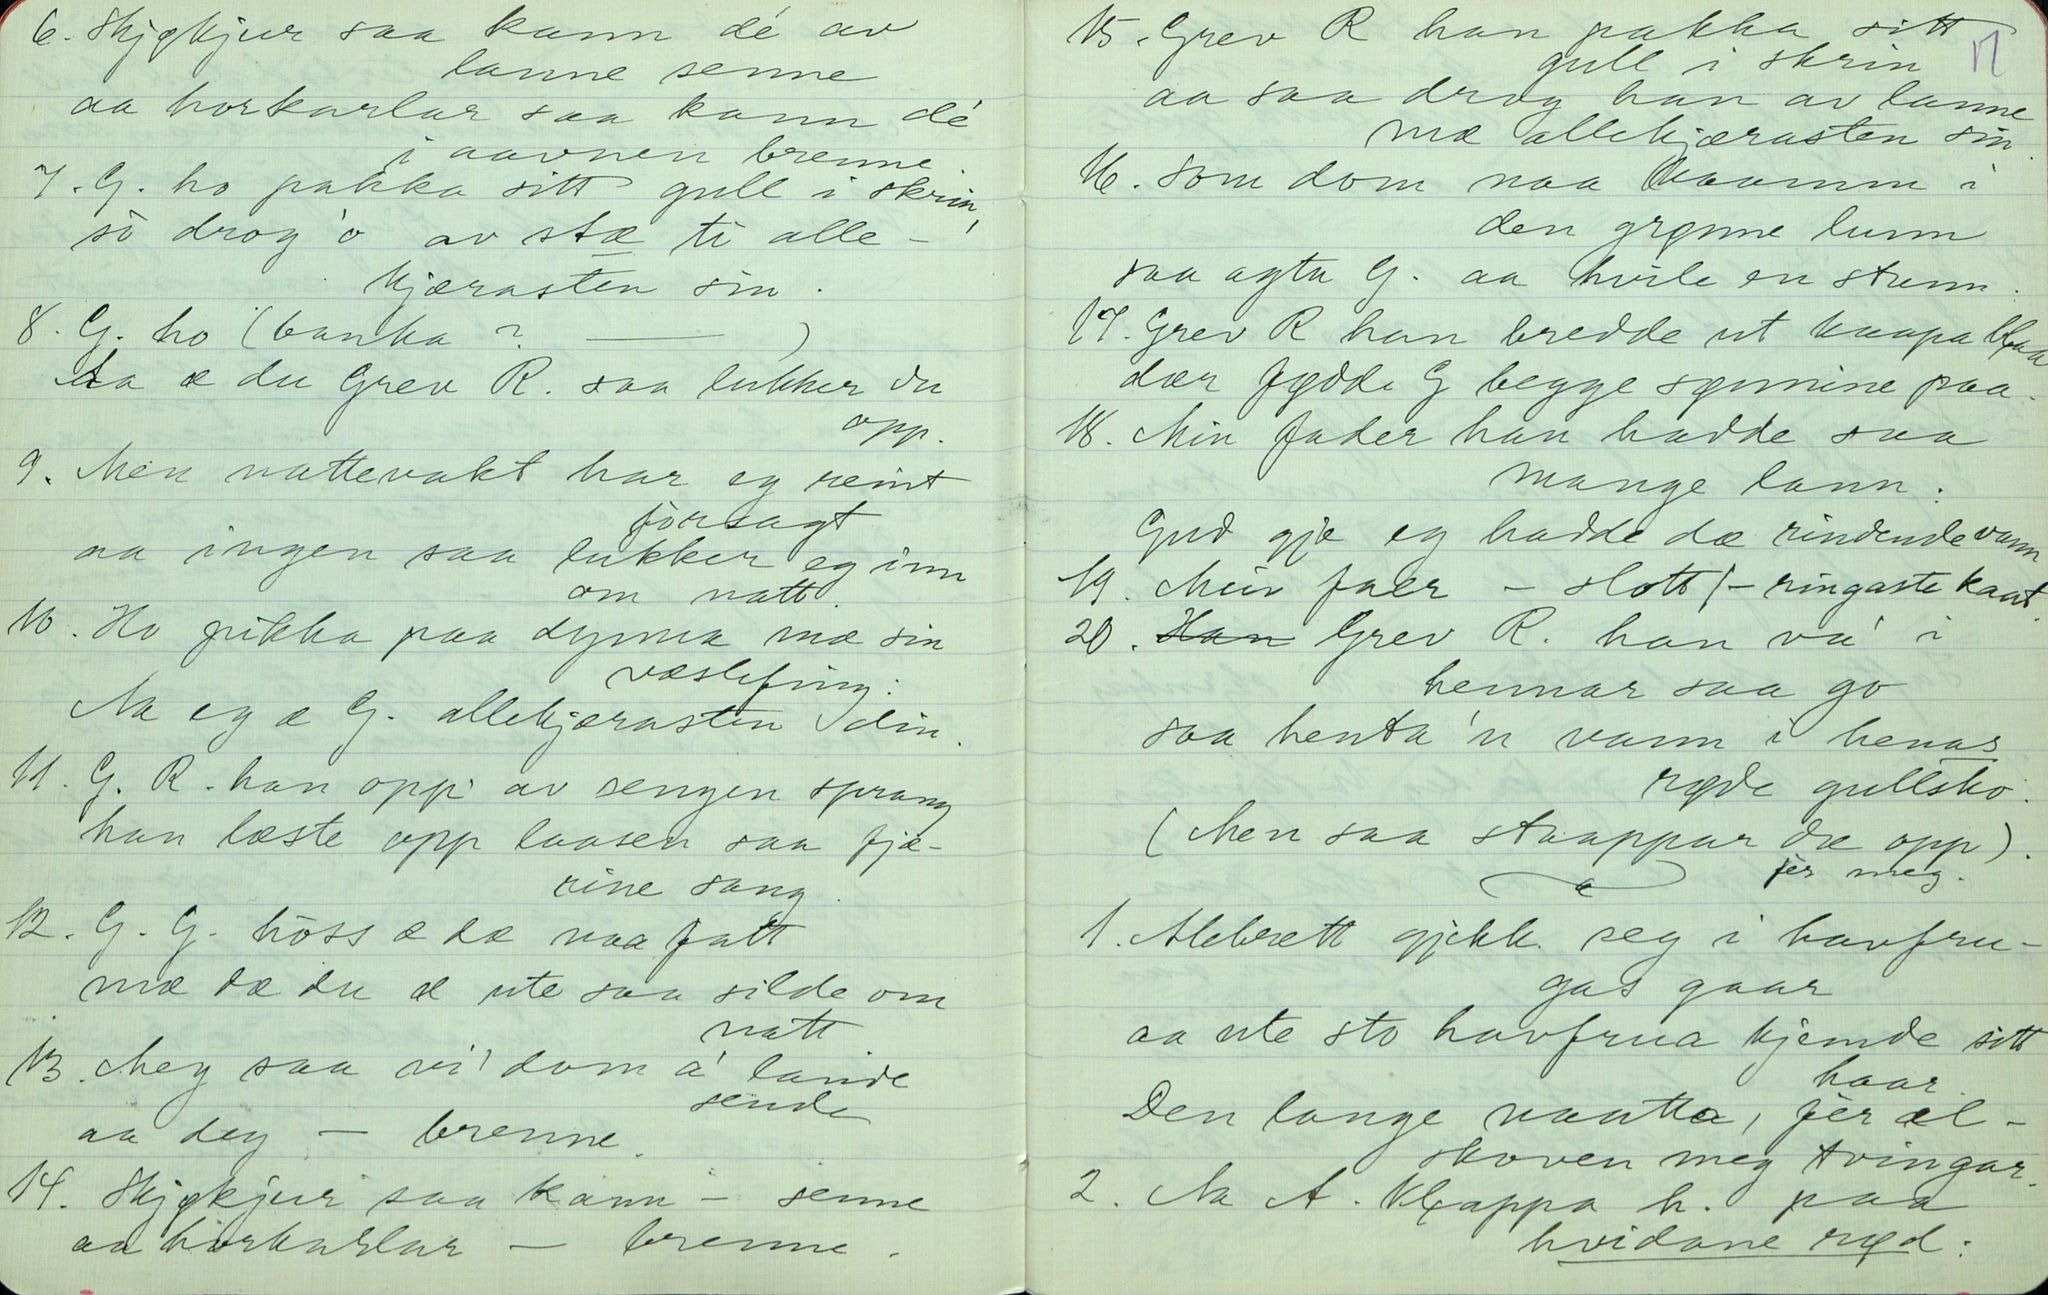 6. Skjøkjur saa kann dé av
lanne senne
aa horkarlar saa kann dé
i aavnen brenne
7. G. ho pakka sitt gull i skrin,
sò drog 'o av stæ ti alle-
kjærasten sin.
8. G. ho (banka ? — )
Aa æ du Grev R. saa lukker du
opp.
9. Men nattevakt har eg reint
forsagt
aa ingen saa lukker eg inn
om natt.
10. Ho pikka paa dynna mæ sin
væslefing:
Aa eg æ G. allekjærasten din.
11. G. R. han opp av sengen sprang
han læste opp laasen saa fjæ-
rine sang.
12. G. G. hòss æ dæ naa fatt
mæ dæ du æ ute saa silde om
natt
13. Meg saa vi' dom a' lande
sende
aa deg — brenne.
14. Skjøkjur saa kann — senne
aa horkarlar — brenne.
17
15. Grev R han pakka sitt
gull i skrin
aa saa drog han av lanne
mæ allekjærasten sin.
16. Som dom naa kaamm i
den grønne lunn
saa agta G. aa hvile en stunn.
17. Grev R han bredde ut kaapa blaa
dær fødde G begge sønnine paa.
18. Min fader han hadde saa
mange lann:
Gud gje eg hadde dæ rindende vann
19. Min faer — slott / — ringaste kaat.
20. Han Grev R. han va' i
hennar saa go
saa henta'n vann i henar
røde gullsko.
(Men saa staappar dæ opp).
fer meg.
1. Alebrett gjekk seg i havfru-
gas gaar
aa ute sto havfrua kjemde sitt
haar
Den lange naatta, fèr æl-
skoven meg tvingar.
2. Aa A. klappa h. paa
hvidane rød: